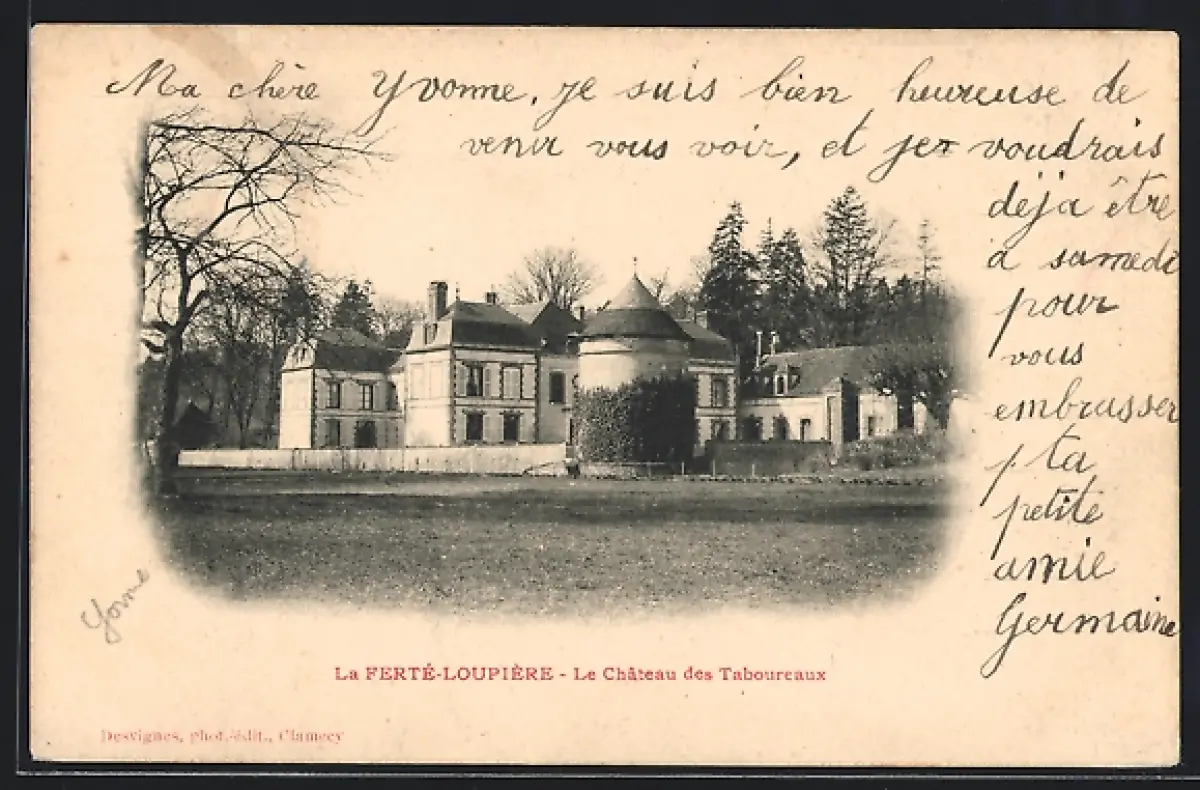 Ma chère Yvonne, je suis bien heureuse de
venir vous voir, et je voudrais
déja être
a samedi
pour
vous
embrasser
ta
petite
amie
Germaine
Yonne
La FERTÉ-LOUPIÈRE - Le Château des Taboureaux
Desvignes, phot.-édit., Clamecy